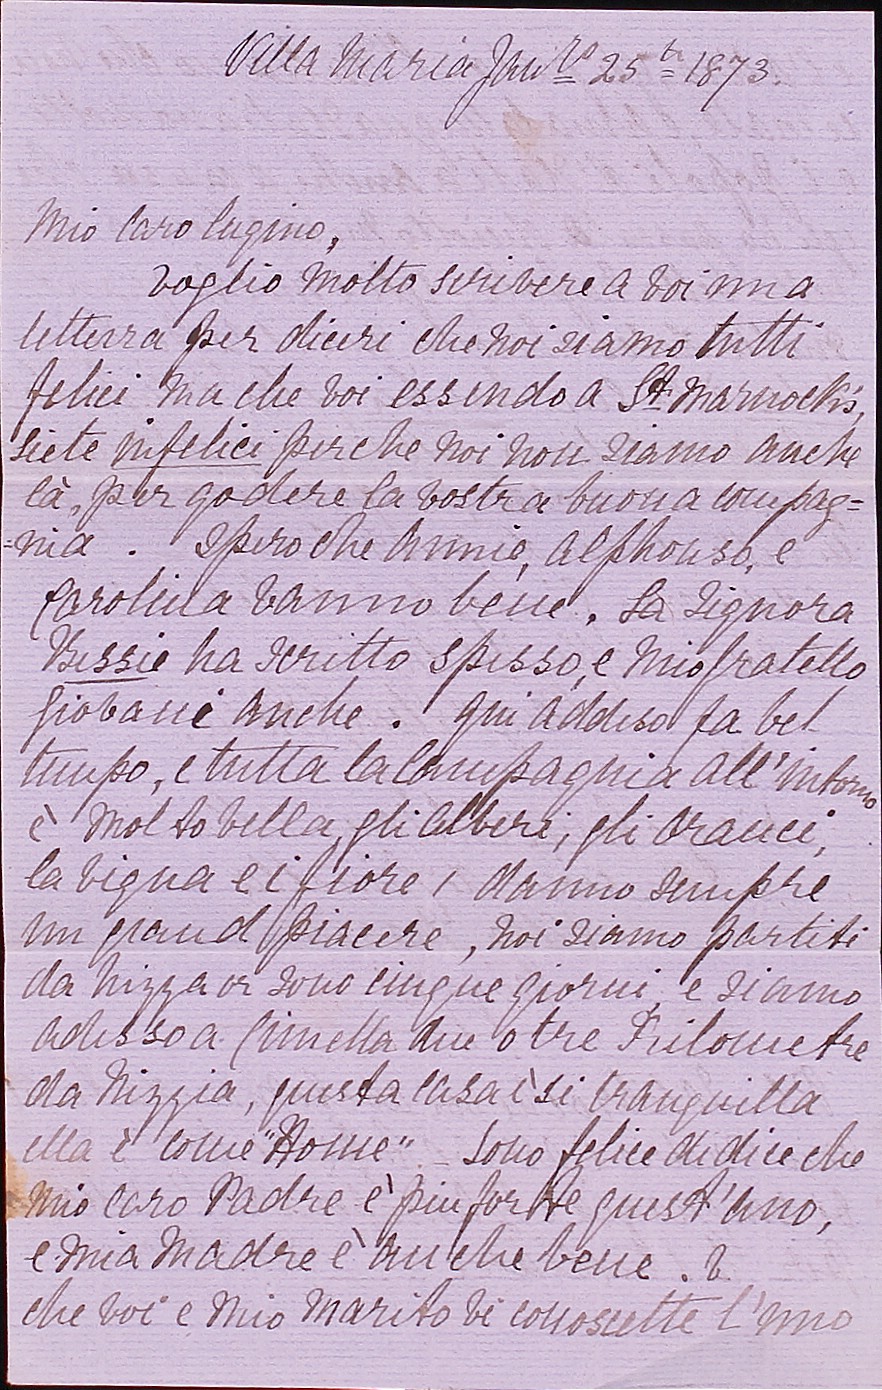 Villa Maria Janro 25th 1873.
Mio Caro Cugino,
Voglio molto scrivere a voi una
letterra per diceri che noi siamo tutti
felici ma che voi essendo a St. Marnock's,
siete infelici perche noi non siamo anche
là, per godere la vostra buona compag=
=nia. Spero che Annie, Alphonso, e
Carolina vanno bene. La Signora
Bessie ha scritto spesso, e mio fratello
Giovani anche. Qui addeso fa bel
tempo, e tutta la Campagnia all'intorno
è molto bella, gli alberi, gli oranci,
la vigna e i fiore, danno sempre
un grand piacere, noi siamo partiti
da Nizza or sono cinque giorni, e siamo
adesso a Cimella due o tre Kilometre
da Nizzia, questa casa è si tranquilla
ella è come "Home" - Sono felice di dice che
mio caro Padre è piu forte quest'ano,
e mia Madre è anche bene.
che voi e mio marito vi conoscette l'uno